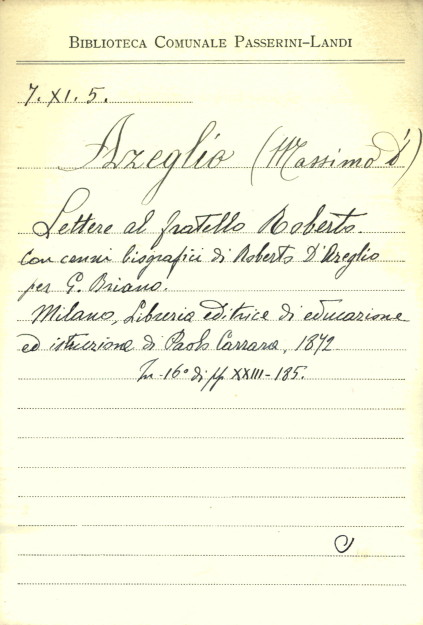 BIBLIOTECA COMUNALE PASSERINI-LANDI
7. XI. 5.
Azeglio (Massimo d')
Lettere al fratello Roberto
con cenni biografici di Roberto D'Azeglio
per G. Briano.
Milano, Libreria editrice di educazione
ed istruzione di Paolo Carrara, 1872
In-16° di pp XXIII-185.